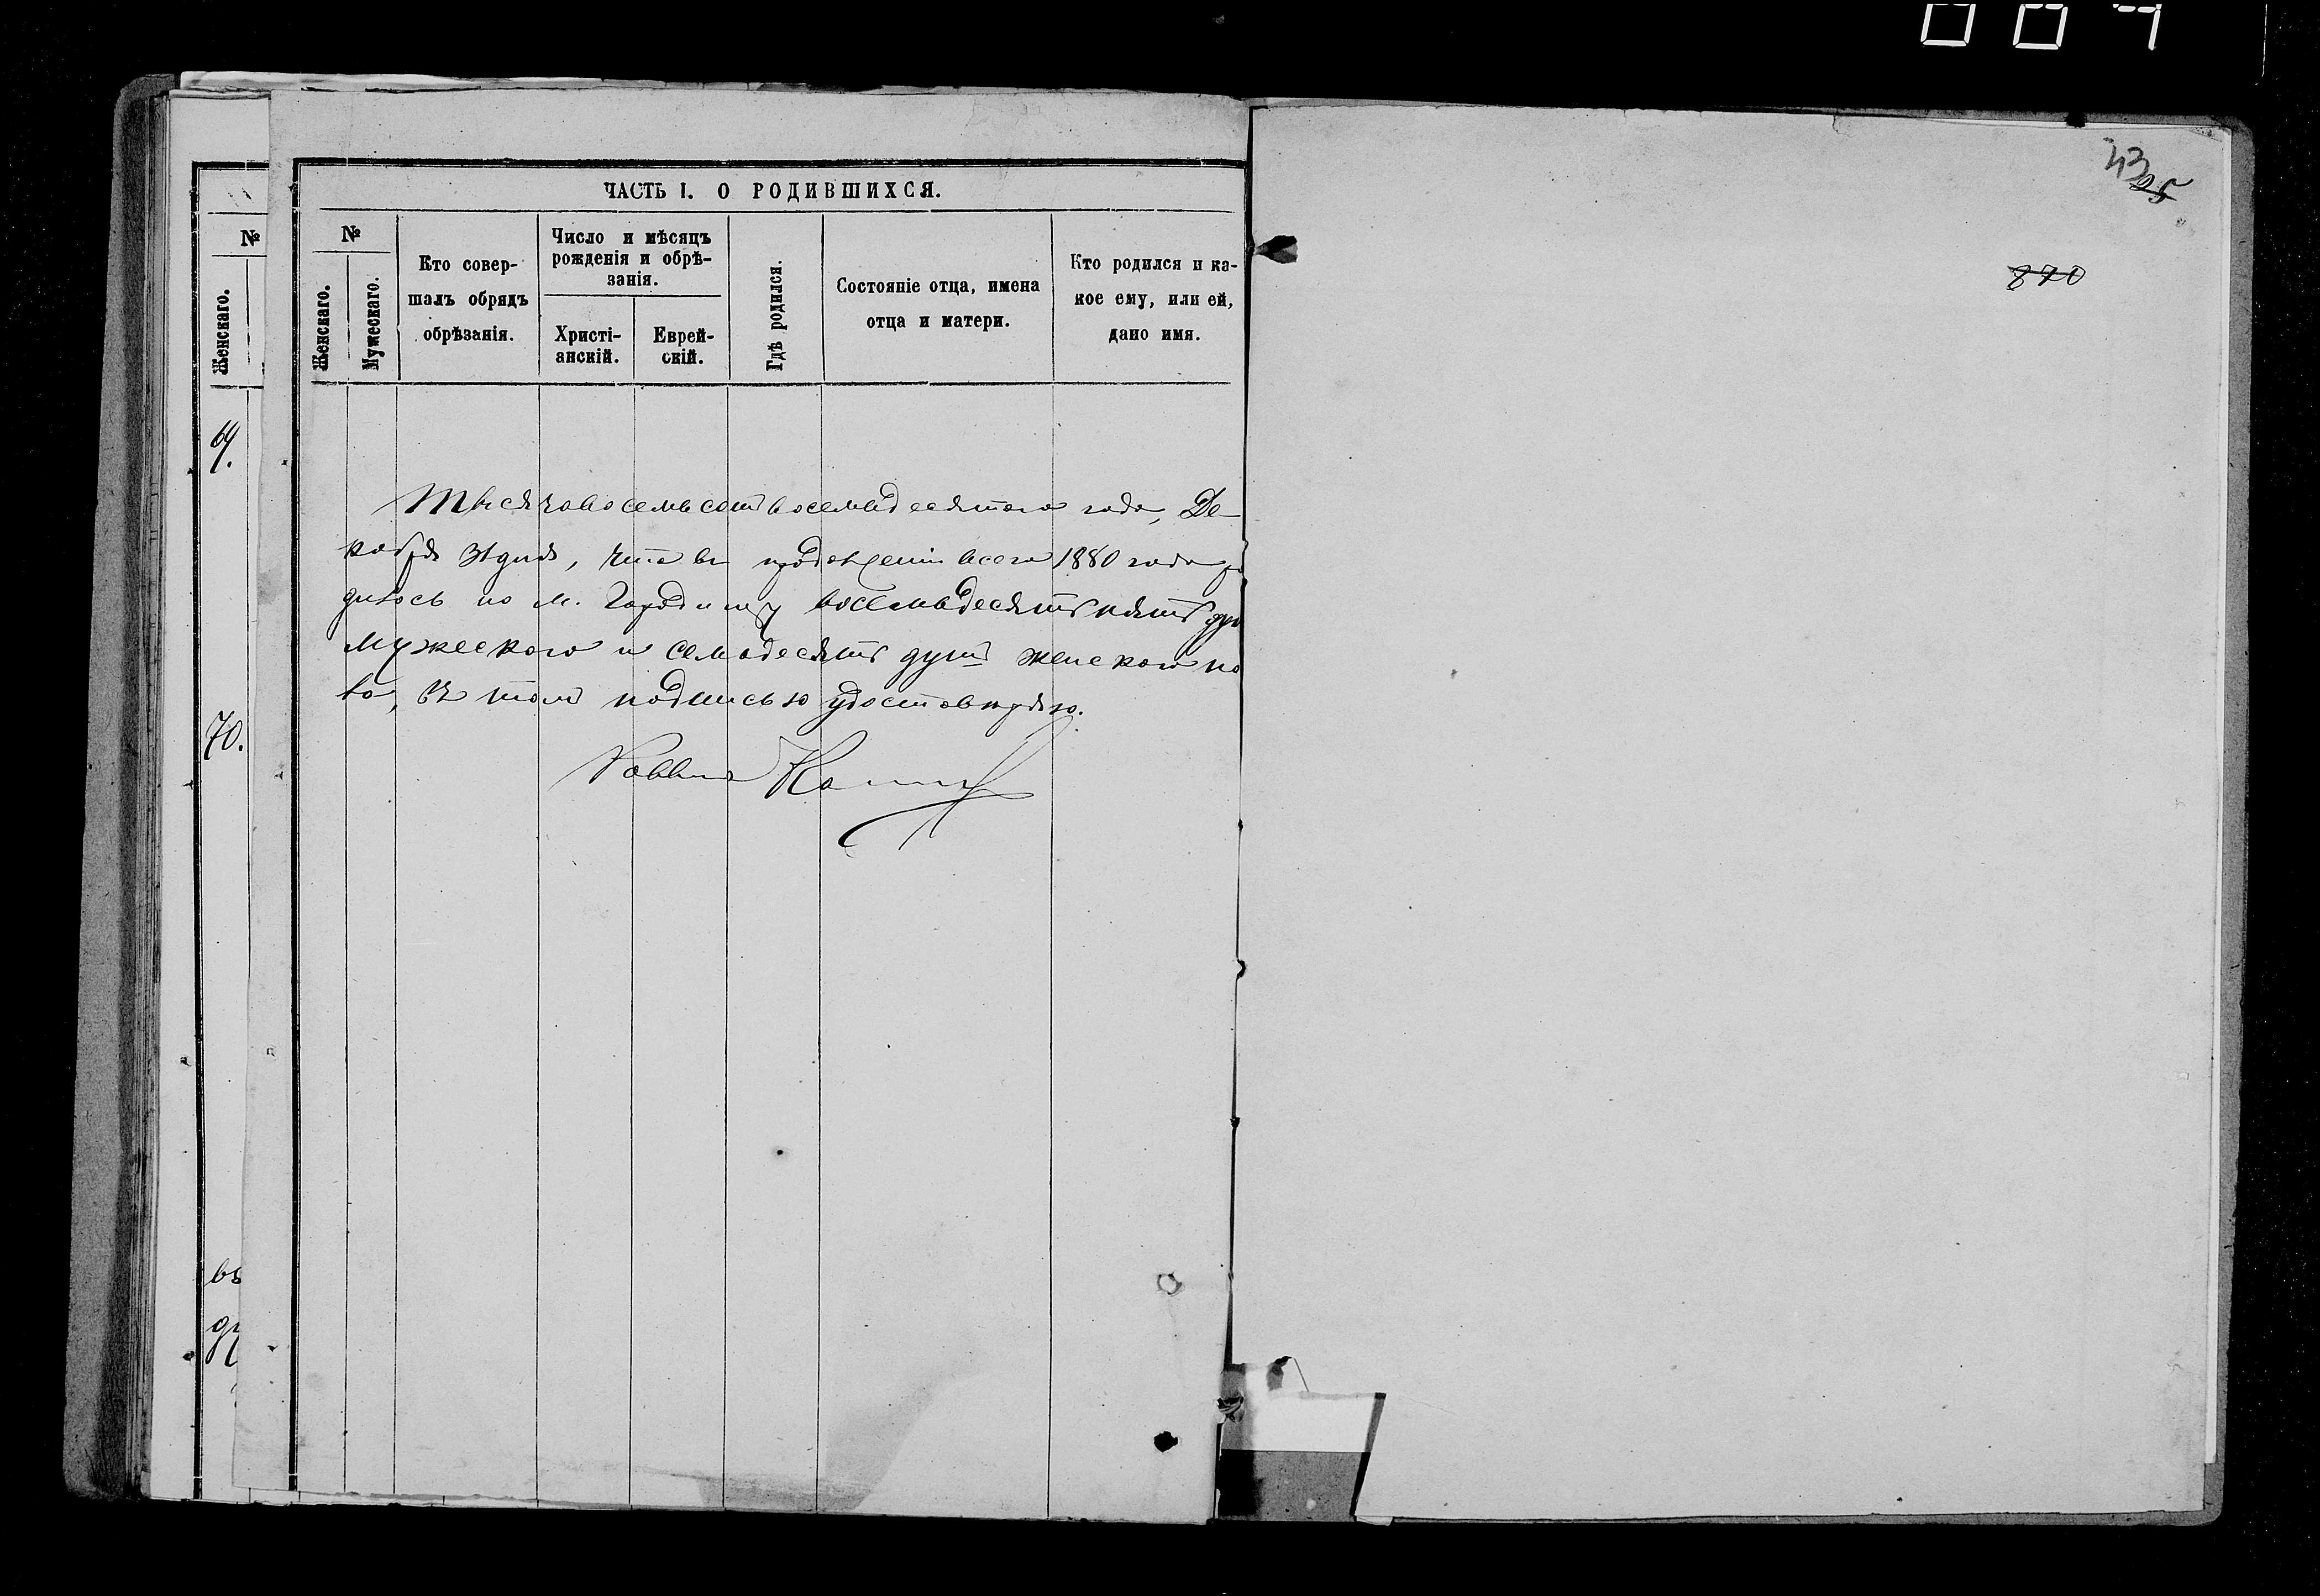 ЧАСТЬ I. О РОДИВШИХСЯ.
№
№
Женскаго.
Женскаго.
Мужескаго.
Кто совер-
шалъ обрядъ
обрѣзанія.
Число и мѣсяцъ
рожденія и обрѣ-
занія.
Христі-
анскій.
Еврей-
скій.
Гдѣ родился.
Состояніе отца, имена
отца и матери.
Кто родился и ка-
кое ему, или ей,
дано имя.
69.
Тысячавосемьсотъ восемьдесятого года, Де-
кабря 31 дня, что въ продолженіи всего 1880 года ро
дилось по м. Городищу восемьдесятъ пять душ
мужеского и семьдесятъ душъ женского по
ла, въ томъ подписью удостовѣряю.
70.
Раввинъ
въ
43
25
870